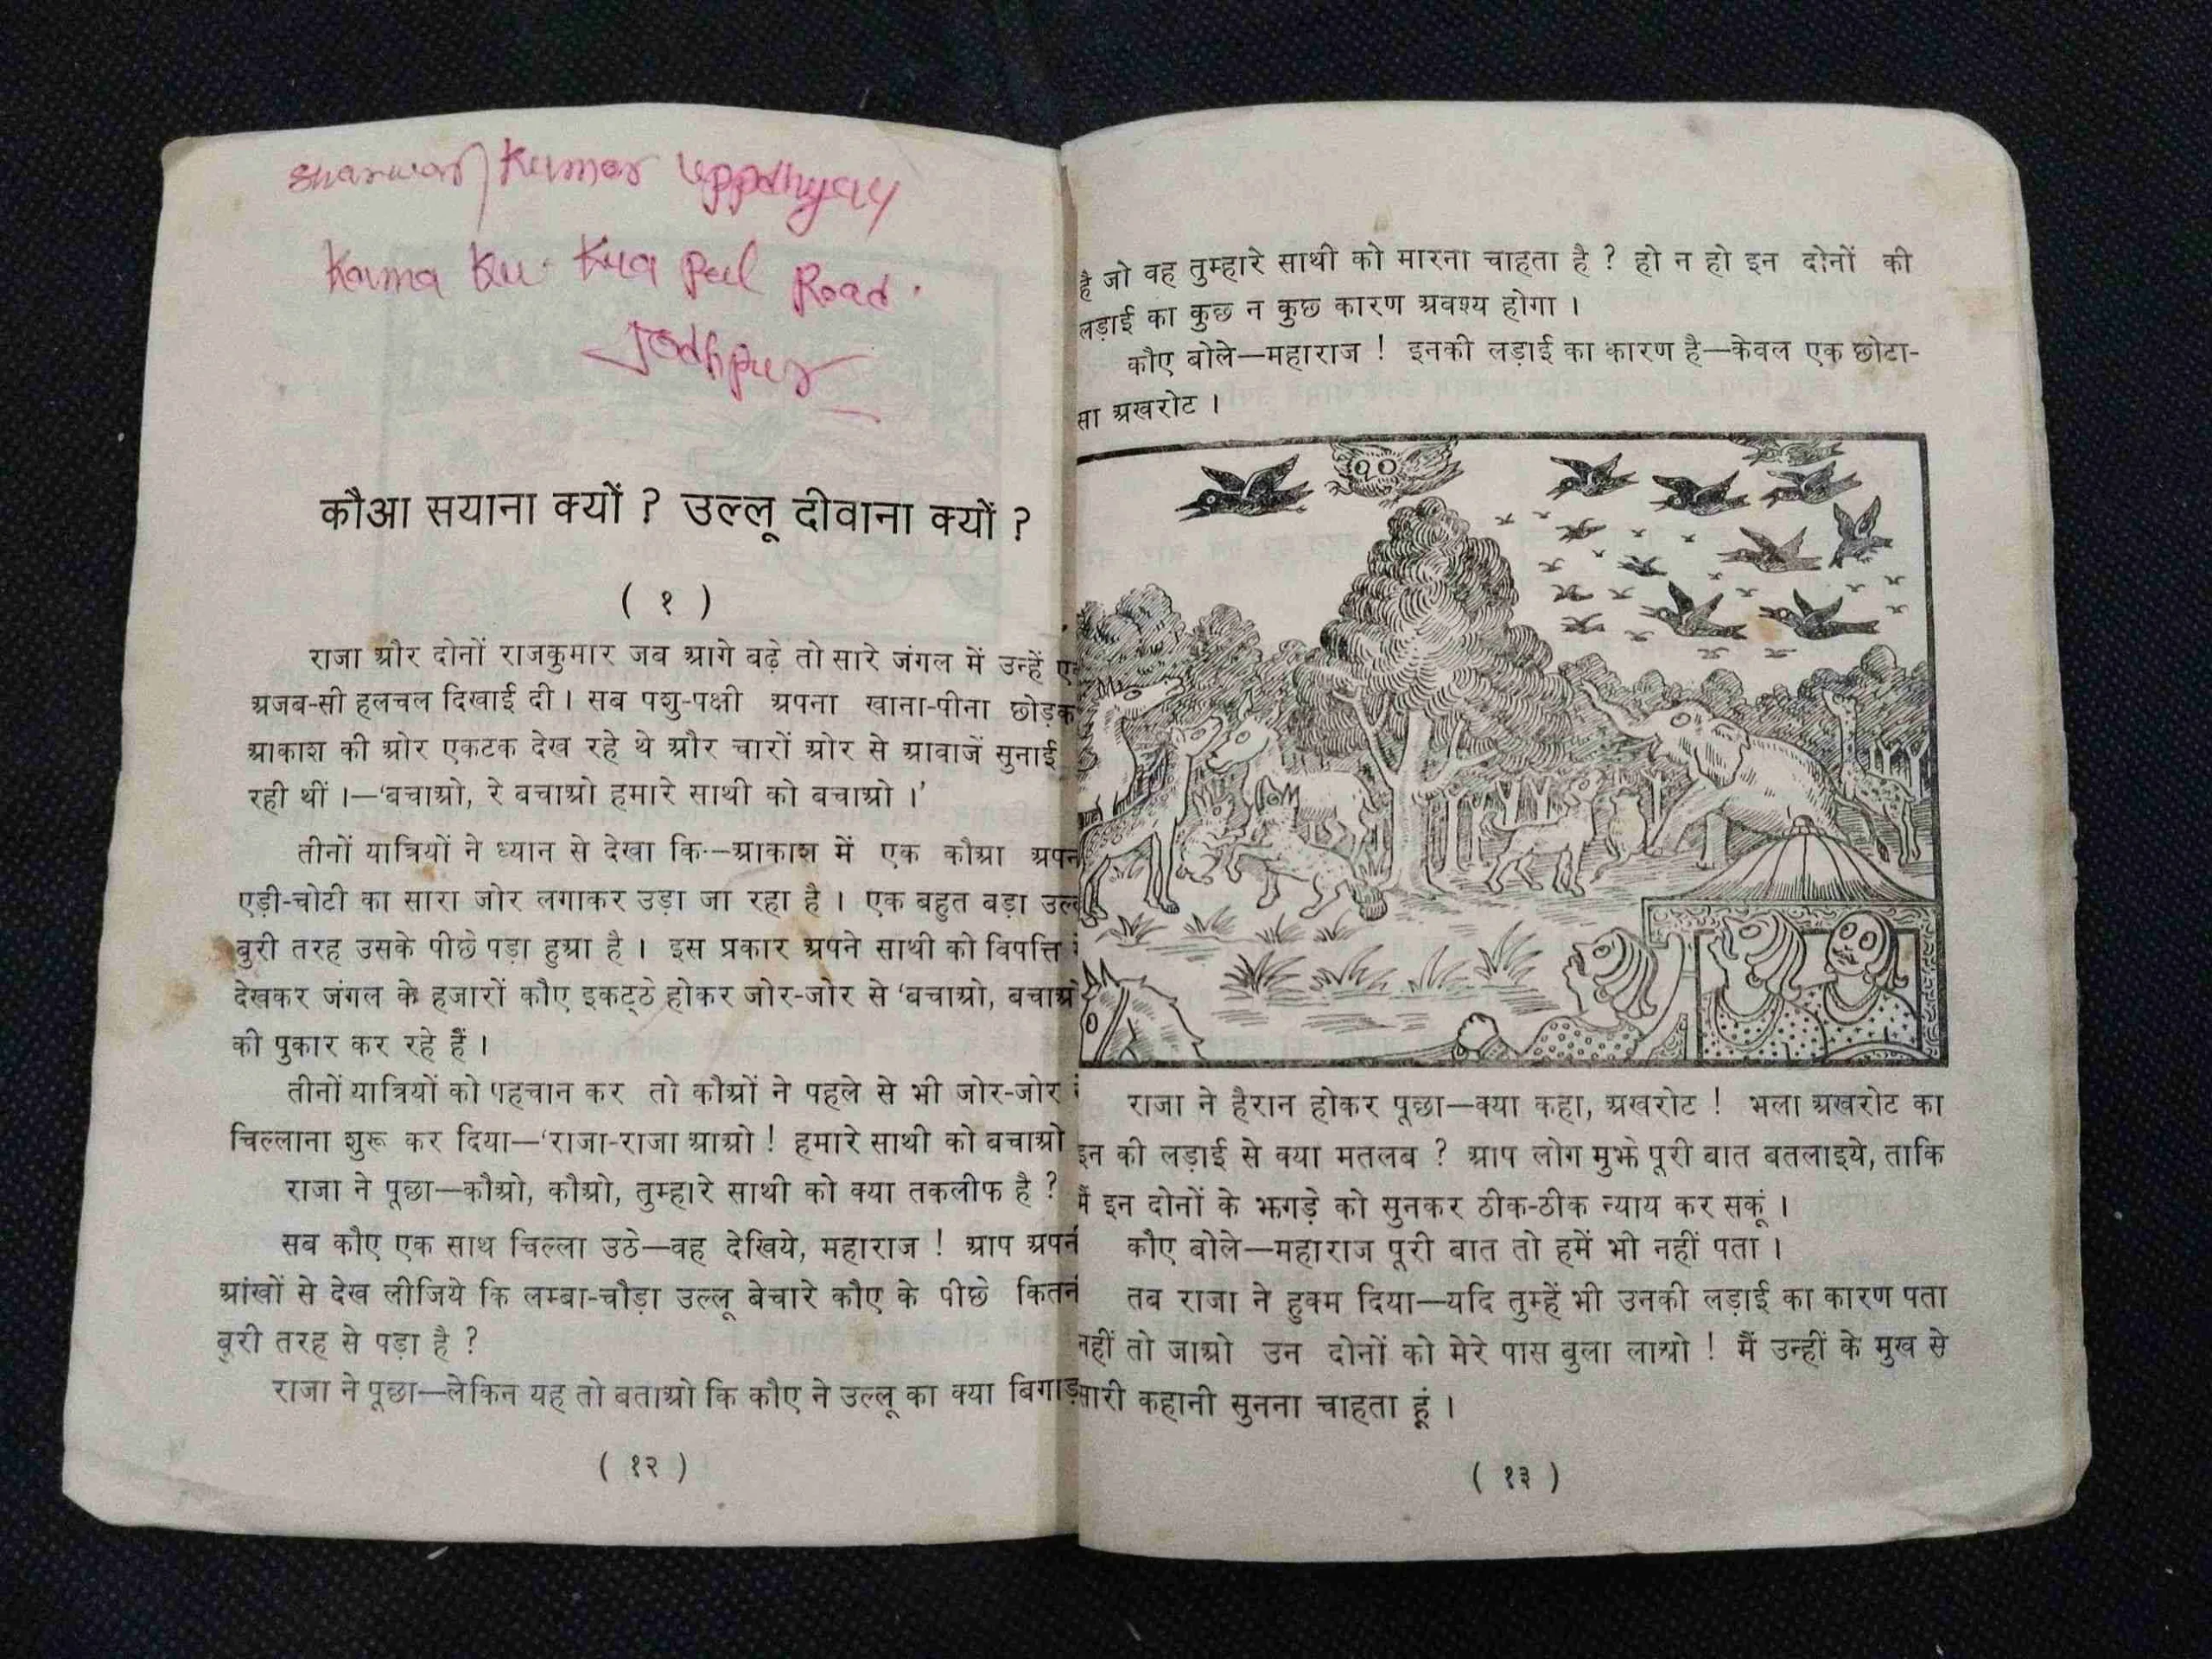 Kumar Uppdhyay
Kama Ku. Kua Peel Road.
Jodhpur
कौआ सयाना क्यों ? उल्लू दीवाना क्यों ?
( १ )
राजा और दोनों राजकुमार जब आगे बढ़े तो सारे जंगल में उन्हें
अजब-सी हलचल दिखाई दी । सब पशु-पक्षी अपना खाना-पीना छोड़क
आकाश की ओर एकटक देख रहे थे और चारों ओर से आवाजें सुनाई
रही थीं ।—‘बचाओ, रे बचाओ हमारे साथी को बचाओ ।’
तीनों यात्रियों ने ध्यान से देखा कि—आकाश में एक कौआ अपन
एड़ी-चोटी का सारा जोर लगाकर उड़ा जा रहा है । एक बहुत बड़ा उल्
बुरी तरह उसके पीछे पड़ा हुआ है । इस प्रकार अपने साथी को विपत्ति
देखकर जंगल के हजारों कौए इकट्ठे होकर जोर-जोर से ‘बचाओ, बचाओ
की पुकार कर रहे हैं ।
तीनों यात्रियों को पहचान कर तो कौओं ने पहले से भी जोर-जोर
चिल्लाना शुरू कर दिया—‘राजा-राजा आओ ! हमारे साथी को बचाओ
राजा ने पूछा—कौओ, कौओ, तुम्हारे साथी को क्या तकलीफ है ?
सब कौए एक साथ चिल्ला उठे—वह देखिये, महाराज ! आप अपन
आंखों से देख लीजिये कि लम्बा-चौड़ा उल्लू बेचारे कौए के पीछे कितन
बुरी तरह से पड़ा है ?
राजा ने पूछा—लेकिन यह तो बताओ कि कौए ने उल्लू का क्या बिगाड़
( १२ )
है जो वह तुम्हारे साथी को मारना चाहता है ? हो न हो इन दोनों की
लड़ाई का कुछ न कुछ कारण अवश्य होगा ।
कौए बोले—महाराज ! इनकी लड़ाई का कारण है—केवल एक छोटा-
सा अखरोट ।
राजा ने हैरान होकर पूछा—क्या कहा, अखरोट ! भला अखरोट का
इन की लड़ाई से क्या मतलब ? आप लोग मुझे पूरी बात बतलाइये, ताकि
मैं इन दोनों के झगड़े को सुनकर ठीक-ठीक न्याय कर सकूं ।
कौए बोले—महाराज पूरी बात तो हमें भी नहीं पता ।
तब राजा ने हुक्म दिया—यदि तुम्हें भी उनकी लड़ाई का कारण पता
नहीं तो जाओ उन दोनों को मेरे पास बुला लाओ ! मैं उन्हीं के मुख से
सारी कहानी सुनना चाहता हूं ।
( १३ )